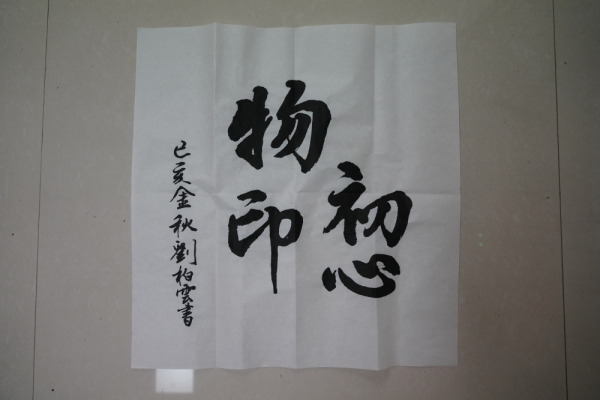 初心
物印
己亥金秋劉柏雲書